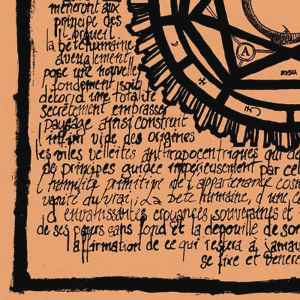 mèneront aux
principe des
l'orgueil
la bête humaine
aveuglement
pose une nouvelle
fondement soit
décor d'une totalité
secrètement embrassa
paysage ainsi construit
vide des origines
les viles velléités anthropocentriques qui de
de principes guidée impérieusement par cel
l'humilité primitive de l'appartenance cos
vérité du vrai, la bête humaine, d'une
d'envahissantes croyances souverains et
de ses peurs sans fond et la dépouille de son
affirmation de ce qui restera à jamais
se fixe et vénère
A